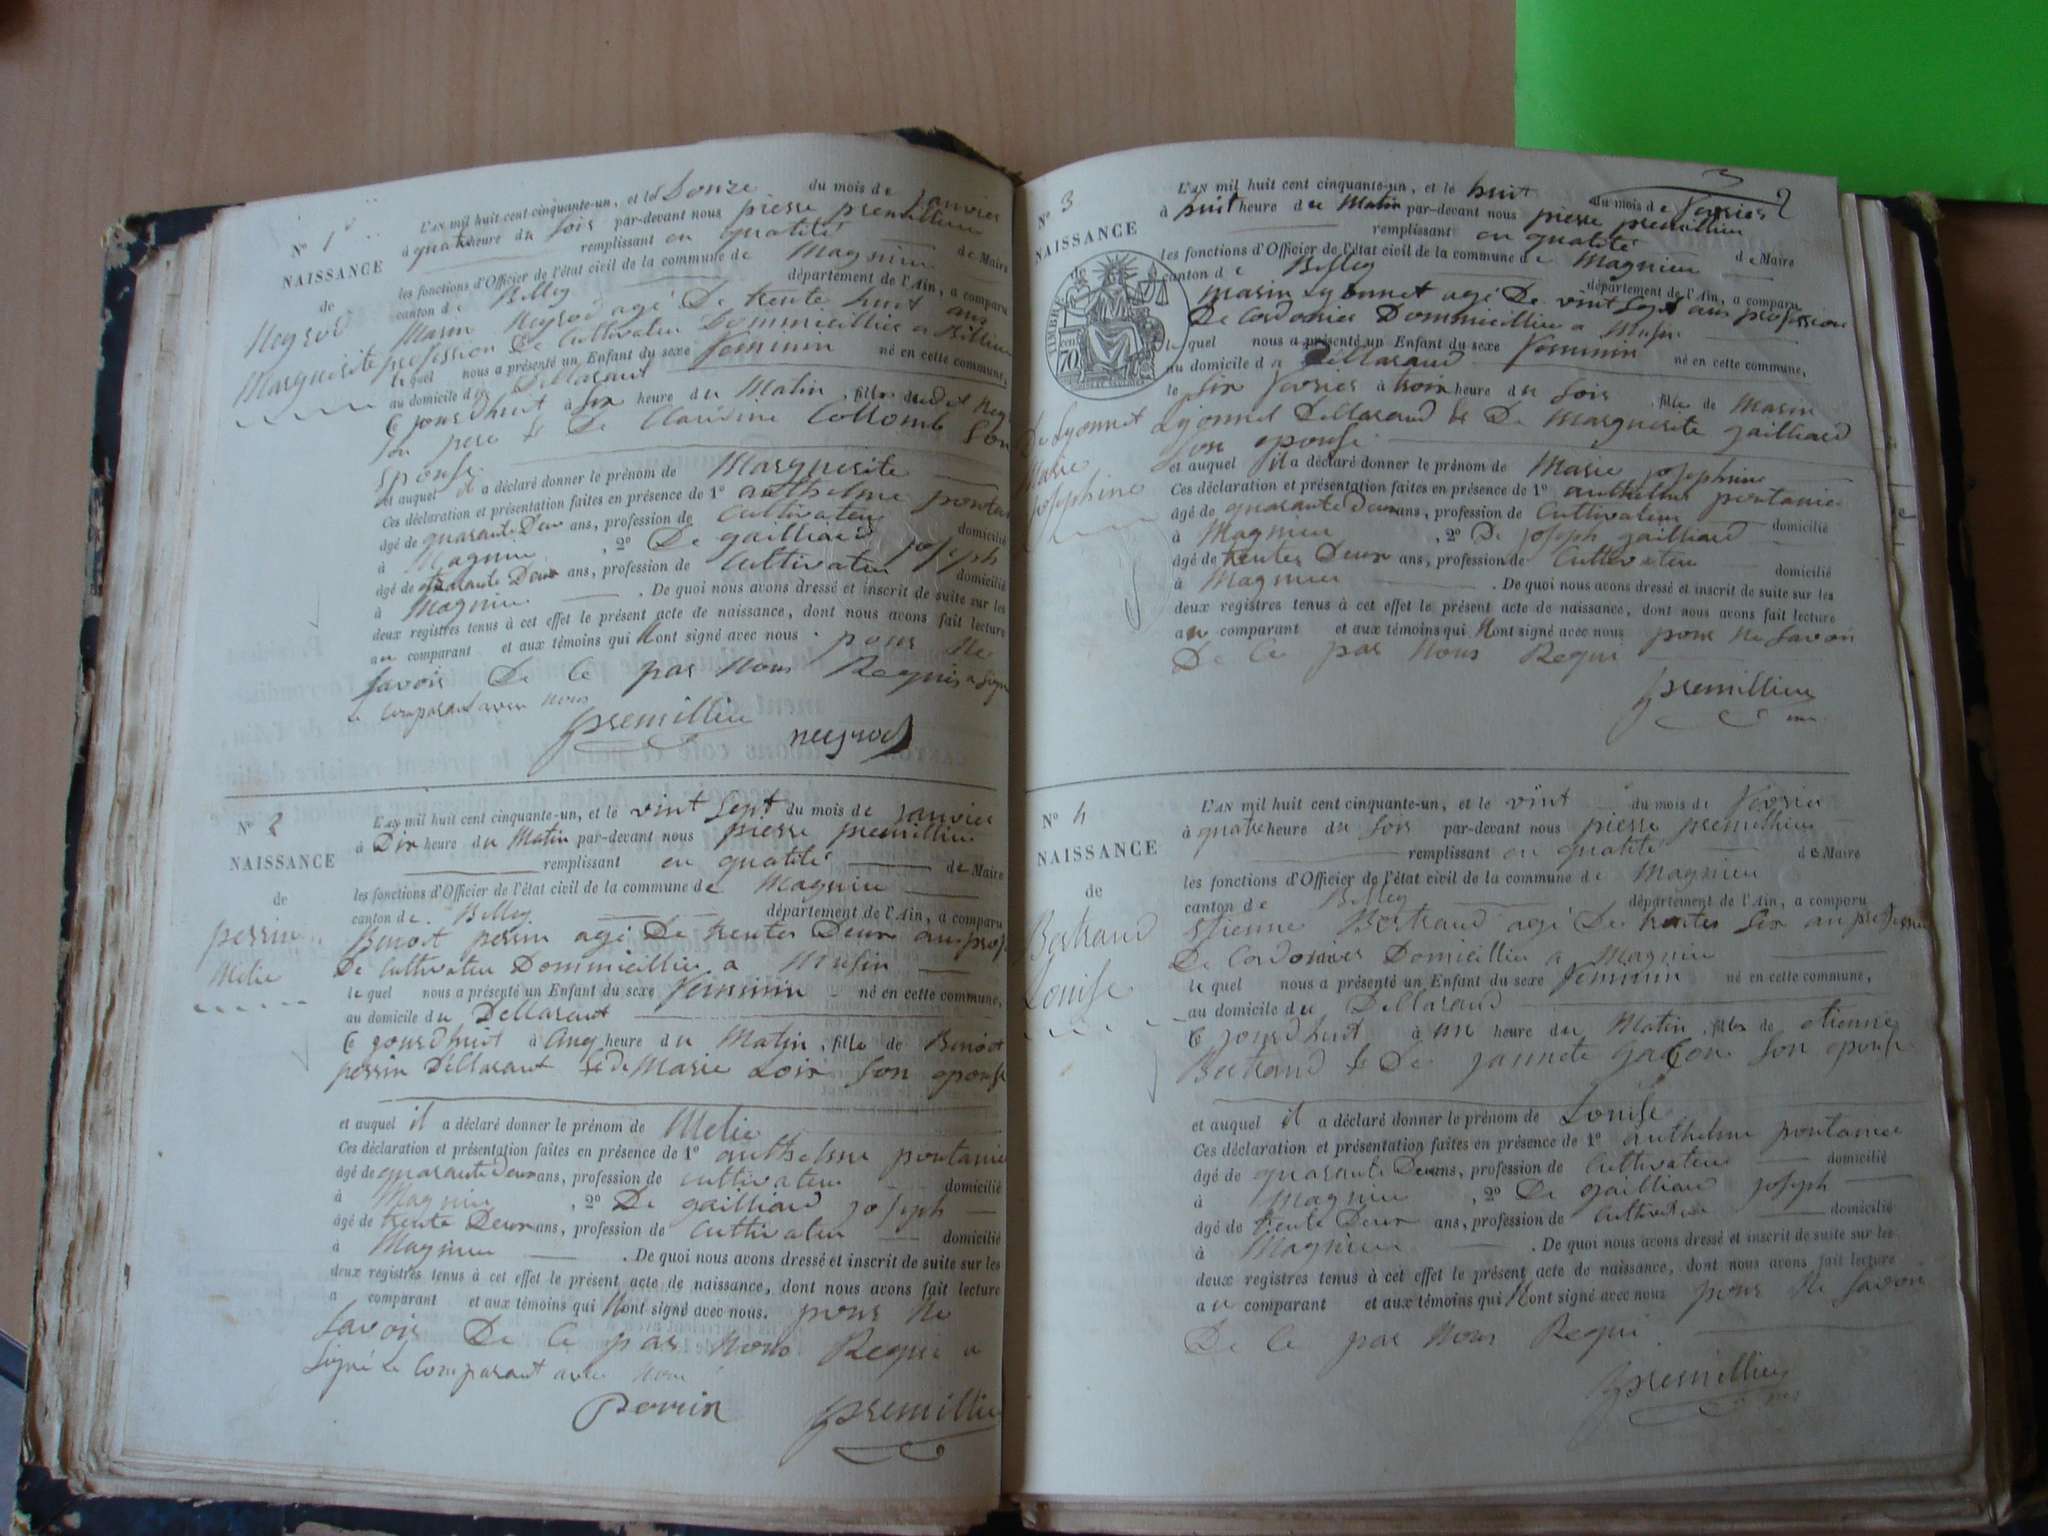 N° 1
NAISSANCE
de
Neyrod
Marguerite
L'AN mil huit cent cinquante-un, et le Douze du mois de janvier
à quatre heure du Soir par-devant nous pierre premillieu
remplissant en qualité de Maire
les fonctions d'Officier de l'état civil de la commune de Magnieu
canton de Belley département de l'Ain, a comparu
Marin Neyrod agé De trente huit ans
profession De Cultivateu Dommicillier a Billieu
le quel nous a présenté un Enfant du sexe feminin né en cette commune,
au domicile du Dellarant
Ce jourdhuit à Six heure du Matin, fille dudit Ney
Son pere & De Claudine Collomb Son
Epouse
et auquel il a déclaré donner le prénom de Marguerite
Ces déclaration et présentation faites en présence de 1° authelme pontan
âgé de quarante Deux ans, profession de Cultivateu domicilié
à Magnieu, 2° De gailliard joseph
âgé de trante Deux ans, profession de Cultivateu domicilié
à Magnieu. De quoi nous avons dressé et inscrit de suite sur les
deux registres tenus à cet effet le présent acte de naissance, dont nous avons fait lecture
au comparant et aux témoins qui Nont signé avec nous pour Ne
Savoir De Ce par Nous Requis a Signé
le Comparant avec nous
premillieu neyrod
N° 2
NAISSANCE
de
perrin
Melie
L'AN mil huit cent cinquante-un, et le vint Sept du mois de janvier
à Dix heure du Matin par-devant nous pierre premillieu
remplissant en qualité de Maire
les fonctions d'Officier de l'état civil de la commune de Magnieu
canton de Belley département de l'Ain, a comparu
Benoit perrin agé De trentes Deux ans prof
De Cultivateu Dommicillier a Musin
le quel nous a présenté un Enfant du sexe feminin né en cette commune,
au domicile du Dellarant
Ce jourdhuit à Cinq heure du Matin, fille de Benoit
perrin Dellarant & de Marie Loix Son epouse
et auquel il a déclaré donner le prénom de Melie
Ces déclaration et présentation faites en présence de 1° authelme pontanie
âgé de quarante deux ans, profession de cultivateu domicilié
à Magnieu, 2° De gailliard joseph
âgé de trente Deux ans, profession de Cultivateu domicilié
à Magnieu. De quoi nous avons dressé et inscrit de suite sur les
deux registres tenus à cet effet le présent acte de naissance, dont nous avons fait lecture
a comparant et aux témoins qui Nont signé avec nous. pour Ne
Savoir De Ce par Nous Requi a
Signé Le Comparant avec Nous
Perrin premillieu
3
2
N° 3
NAISSANCE
de
De Lyonnet
Marie
josephine
TIMBRE
70
L'AN mil huit cent cinquante-un, et le huit du mois de fevrier
à huit heure du Matin par-devant nous pierre premillieu
remplissant en qualité
les fonctions d'Officier de l'état civil de la commune de Magnieu de Maire
canton de Belley département de l'Ain, a comparu
Marin Lyonnet agé De vint Sept ans profession
De Cordonier Dommicillier a Musin
le quel nous a présenté un Enfant du sexe feminin né en cette commune,
au domicile du Dellarand
le Six fevrier à troix heure du Soir, fille de Marin
Lyonnet Dellarand & De Marguerite gailliard
Son epouse
et auquel il a déclaré donner le prénom de Marie josephine
Ces déclaration et présentation faites en présence de 1° authelme pontanie
âgé de quarante deux ans, profession de Cultivateu domicilié
à Magnieu, 2° De joseph gailliard
âgé de trentes Deux ans, profession de Cultivateu domicilié
à Magnieu. De quoi nous avons dressé et inscrit de suite sur les
deux registres tenus à cet effet le présent acte de naissance, dont nous avons fait lecture
au comparant et aux témoins qui Nont signé avec nous pour Ne Savoir
De Ce par Nous Requi
premillieu
N° 4
NAISSANCE
de
Bertrand
Louise
L'AN mil huit cent cinquante-un, et le vint du mois de fevrier
à quatre heure du Soir par-devant nous pierre premillieu
remplissant en qualité de Maire
les fonctions d'Officier de l'état civil de la commune de Magnieu
canton de Belley département de l'Ain, a comparu
Etienne Bertrand agé De trentes Six an profession
De Cordonnier Domicillier a Magnieu
le quel nous a présenté un Enfant du sexe feminin né en cette commune,
au domicile du Dellarand
Ce jourdhuit à un heure du Matin, fille de etienne
Bertrand & De jannete gaCon Son epouse
et auquel il a déclaré donner le prénom de Louise
Ces déclaration et présentation faites en présence de 1° authelme pontanier
âgé de quarante Deux ans, profession de Cultivateu domicilié
à Magnieu, 2° De gailliard joseph
âgé de trente Deux ans, profession de Cultivateu domicilié
à Magnieu. De quoi nous avons dressé et inscrit de suite sur les
deux registres tenus à cet effet le présent acte de naissance, dont nous avons fait lecture
au comparant et aux témoins qui Nont signé avec nous pour Ne Savoir
De Ce par Nous Requi
premillieu